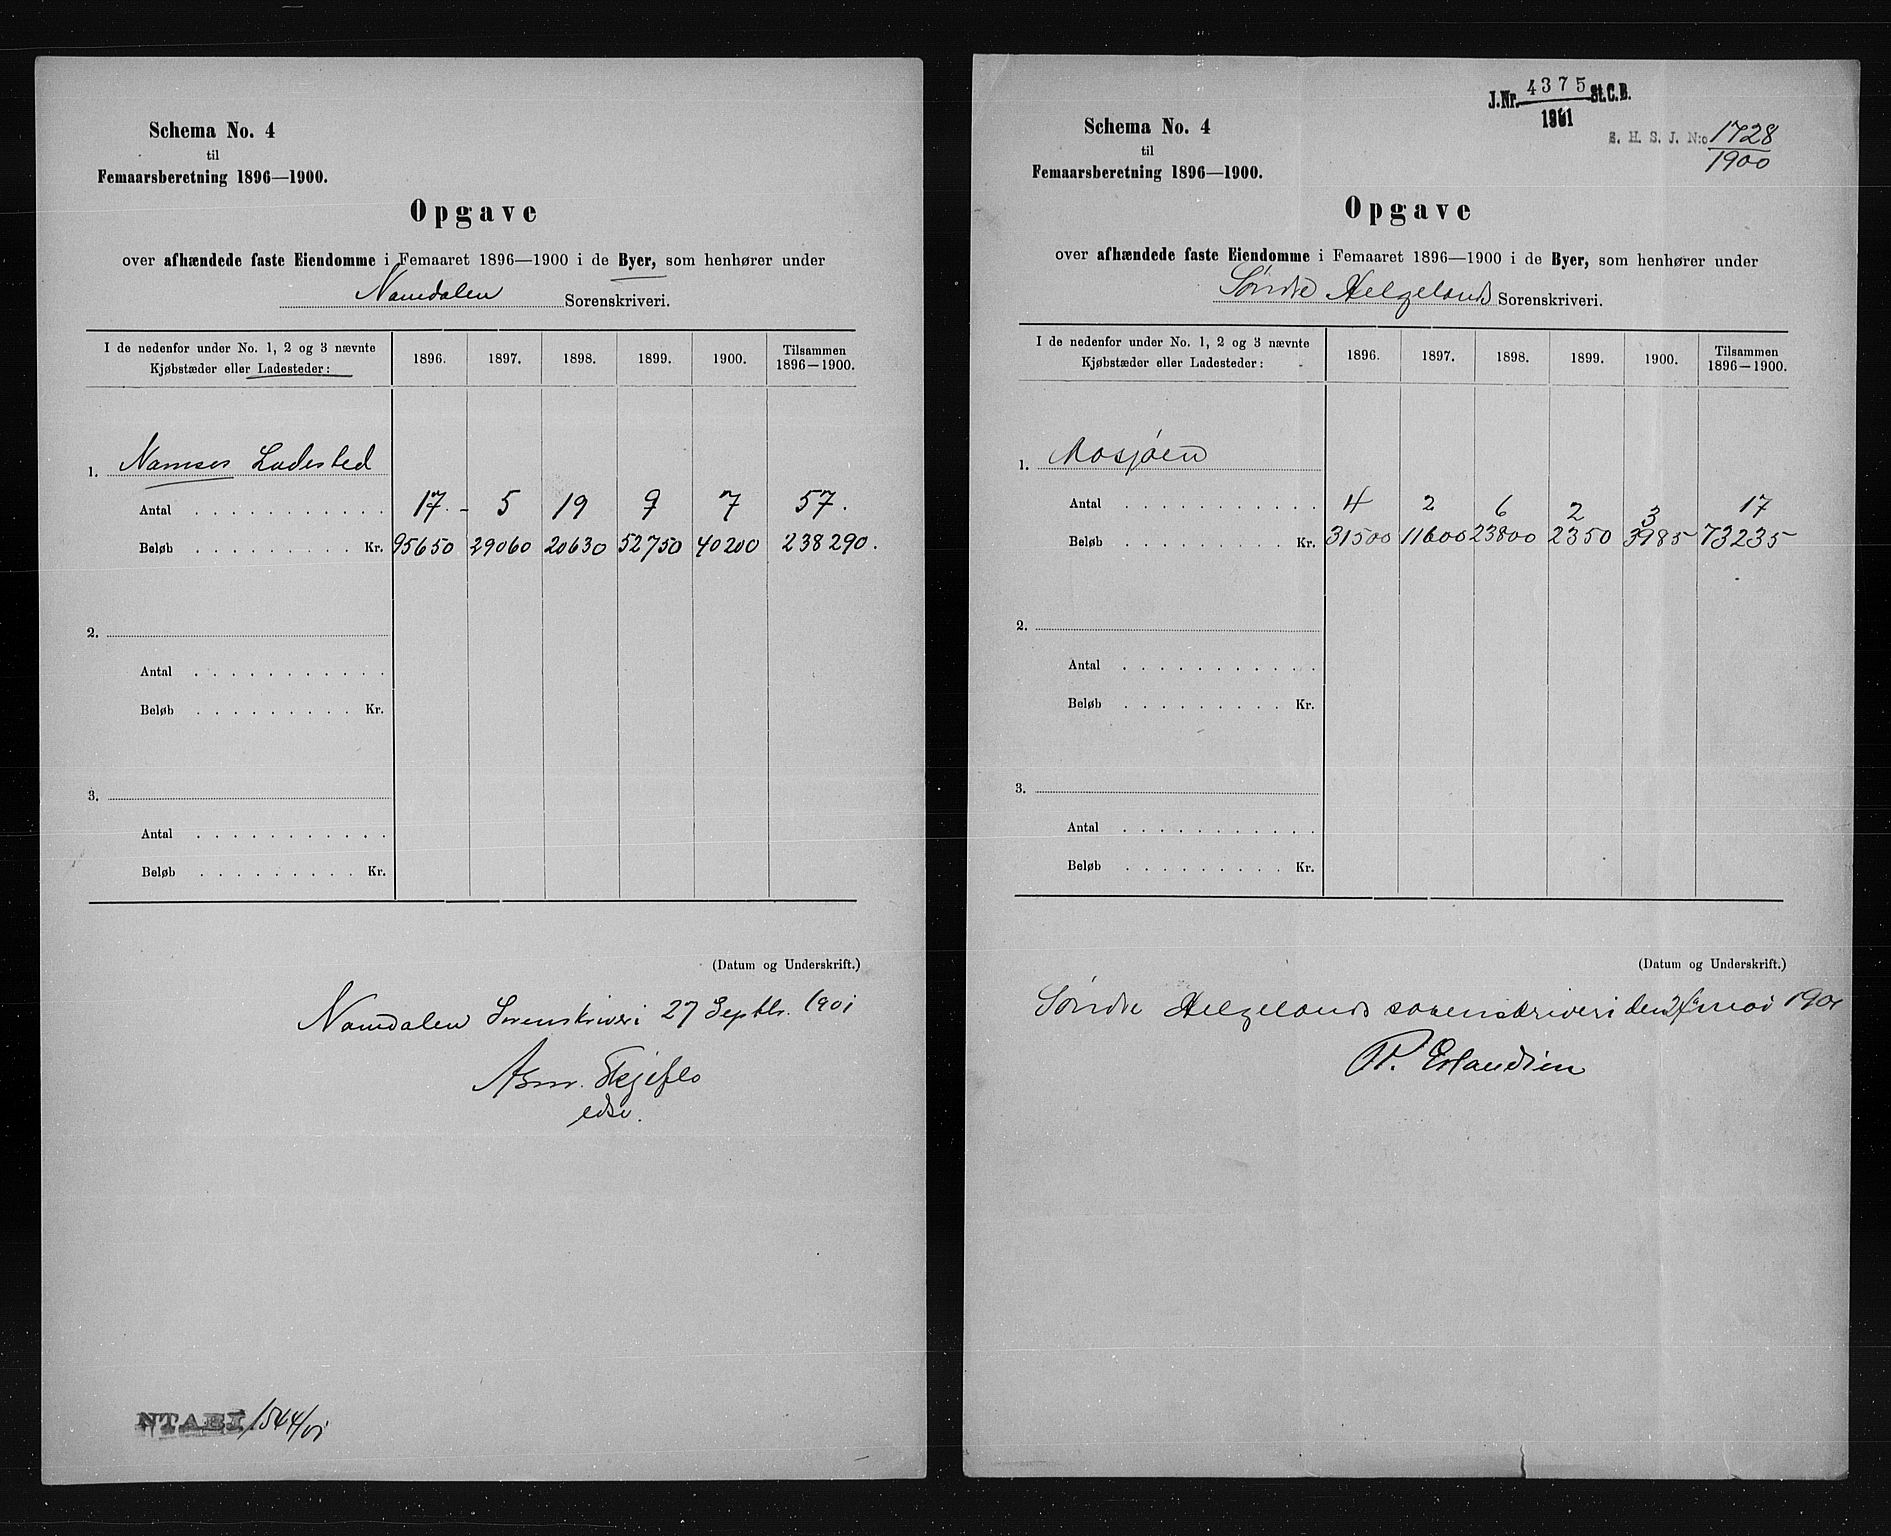 Schema No. 4
til
Femaarsberetning 1896—1900.
Opgave
over afhændede faste Eiendomme i Femaaret 1896—1900 i de Byer, som henhører under
Namdalen Sorenskriveri.
I de nedenfor under No. 1, 2 og 3 nævnte Kjøbstæder eller Ladesteder: 1896. 1897. 1898. 1899. 1900. Tilsammen 1896—1900.
1. Namsos Ladested
Antal 17 - 5 19 9 7 57.
Beløb Kr. 95650 29060 20630 52750 40200 238290.
2.
Antal
Beløb Kr.
3.
Antal
Beløb Kr.
(Datum og Underskrift.)
Namdalen Sorenskriveri 27 Septbr. 1901
Skjeflo
edsv.
NTABI 1544/01
J.Nr. 4375 St.C.B.
1901
S. H. S. J. N:o 1728
1900
Schema No. 4
til
Femaarsberetning 1896—1900.
Opgave
over afhændede faste Eiendomme i Femaaret 1896—1900 i de Byer, som henhører under
Søndre Helgelands Sorenskriveri.
I de nedenfor under No. 1, 2 og 3 nævnte Kjøbstæder eller Ladesteder: 1896. 1897. 1898. 1899. 1900. Tilsammen 1896—1900.
1. Mosjøen
Antal 4 2 6 2 3 17
Beløb Kr. 31500 11600 23800 2350 3985 73235
2.
Antal
Beløb Kr.
3.
Antal
Beløb Kr.
(Datum og Underskrift.)
Søndre Helgelands sorenskriveri den mai 1901
P. Erlandsen